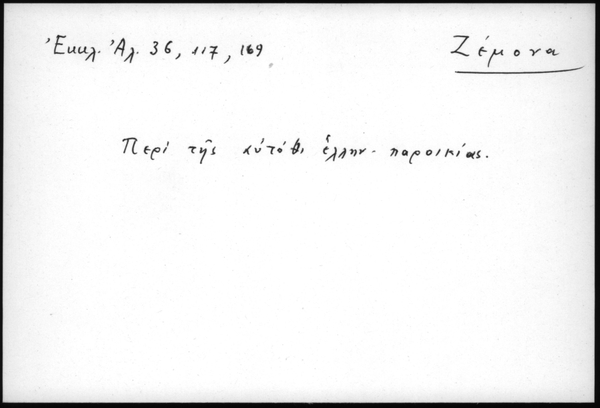 Ἐκκλ. Ἀλ. 36, 117, 169
Ζέμονα
Περὶ τῆς αὐτόθι ἑλλην. παροικίας.